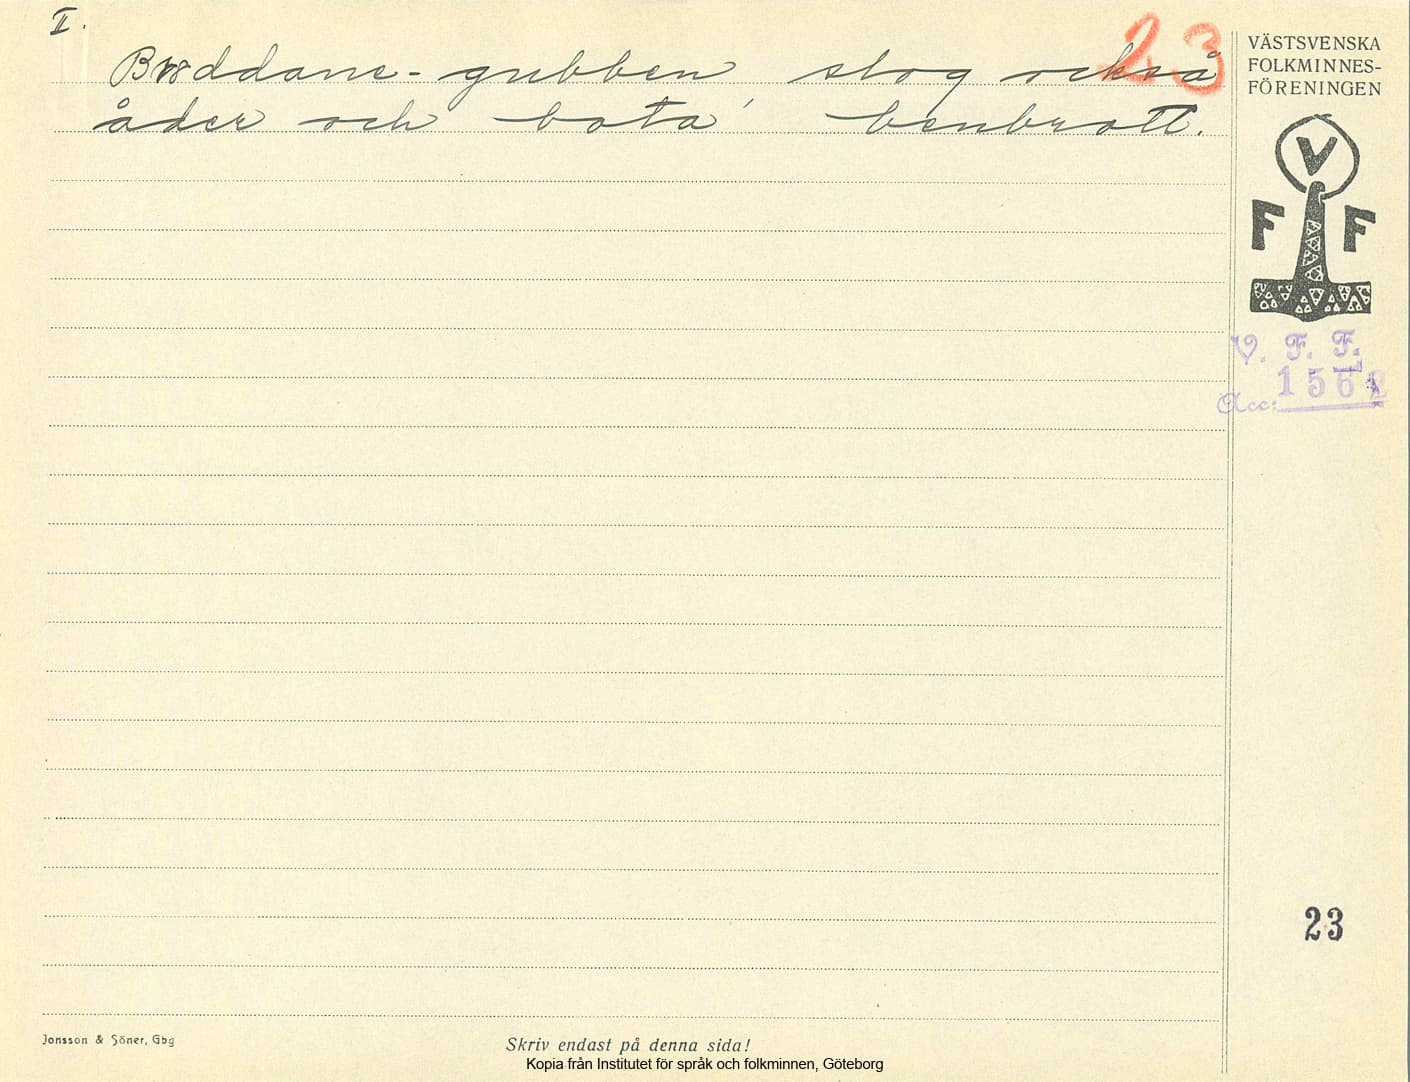 II.
23
Bræddane-gubben slog också
åder och bota' benbrott.
VÄSTSVENSKA
FOLKMINNES-
FÖRENINGEN
V
F F
V. F. F.
Acc: 1562
23
Jonsson & Söner, Gbg
Skriv endast på denna sida!
Kopia från Institutet för språk och folkminnen, Göteborg